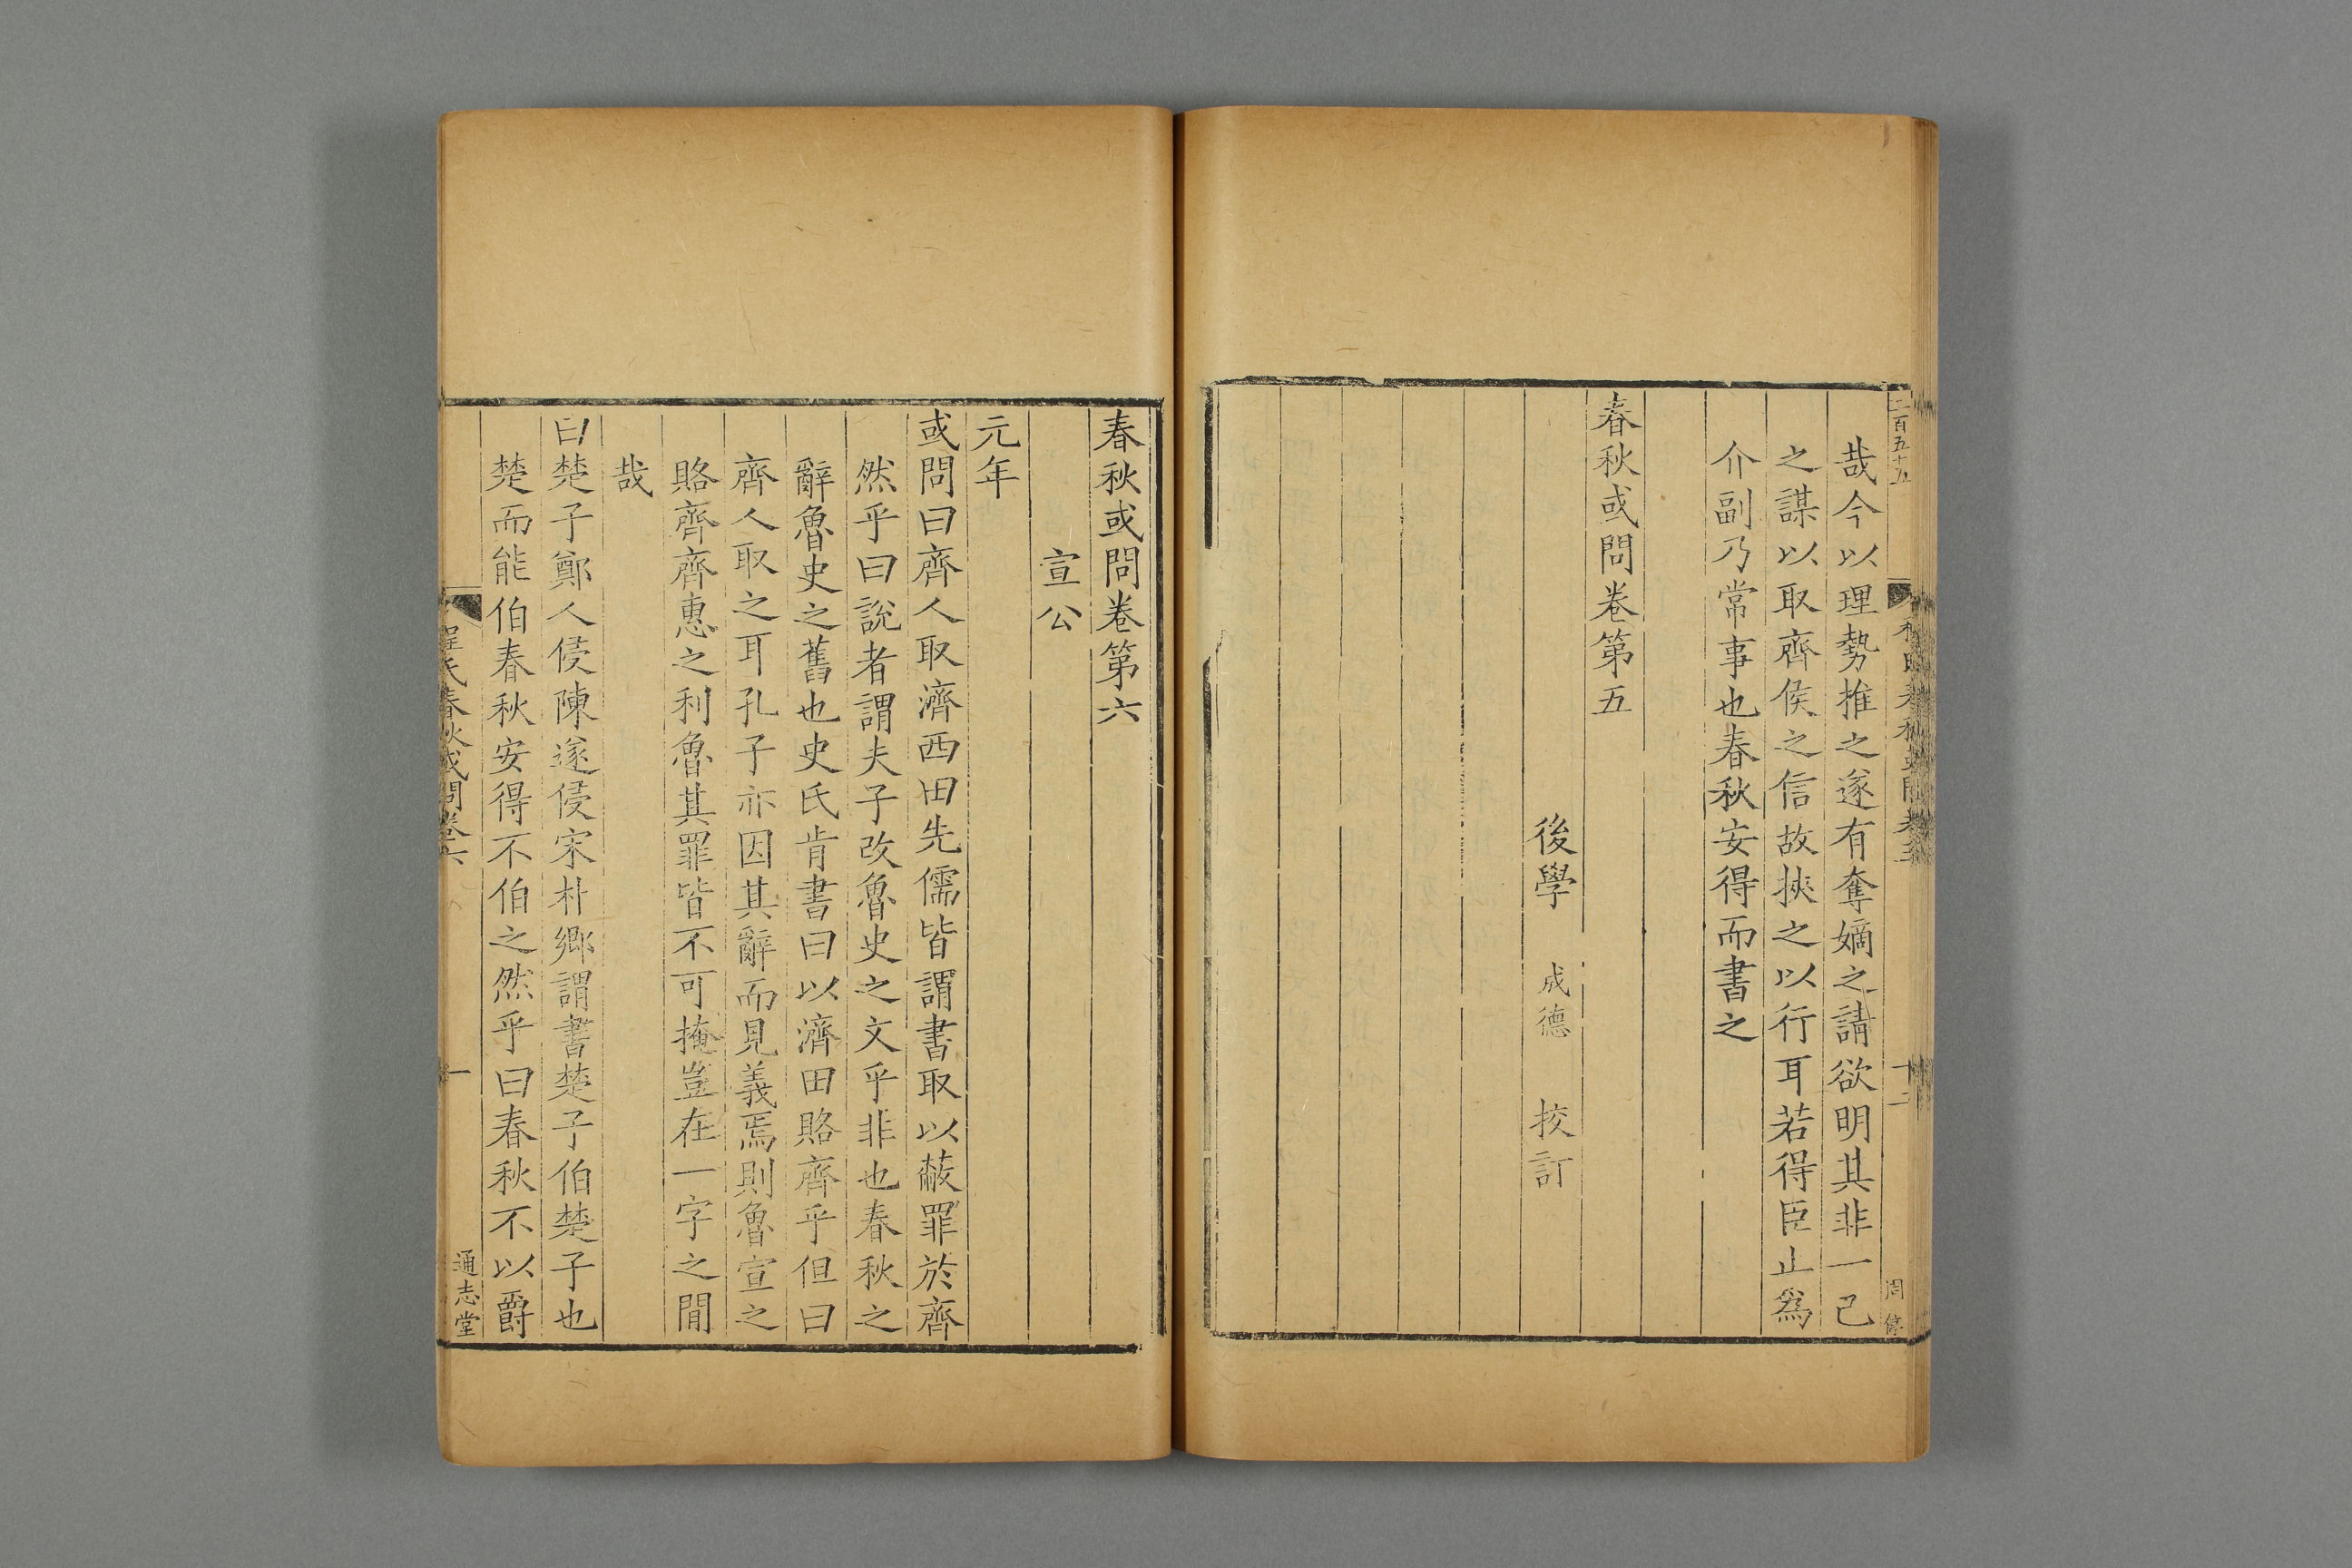 二百五十五
哉今以理勢推之遂有奪嫡之請欲明其非一己
之謀以取齊侯之信故挾之以行耳若得臣止爲
介副乃常事也春秋安得而書之
春秋或問卷第五
後學 成德 校訂
春秋或問卷第六
宣公
元年
或問曰齊人取濟西田先儒皆謂書取以蔽罪於齊
然乎曰說者謂夫子改魯史之文乎非也春秋之
辭魯史之舊也史氏肯書曰以濟田賂齊乎但曰
齊人取之耳孔子亦因其辭而見義焉則魯宣之
賂齊齊惠之利魯其罪皆不可掩豈在一字之間
哉
曰楚子鄭人侵陳遂侵宋朴鄉謂書楚子伯楚子也
楚而能伯春秋安得不伯之然乎曰春秋不以爵
程氏春秋或問卷六
一
通志堂